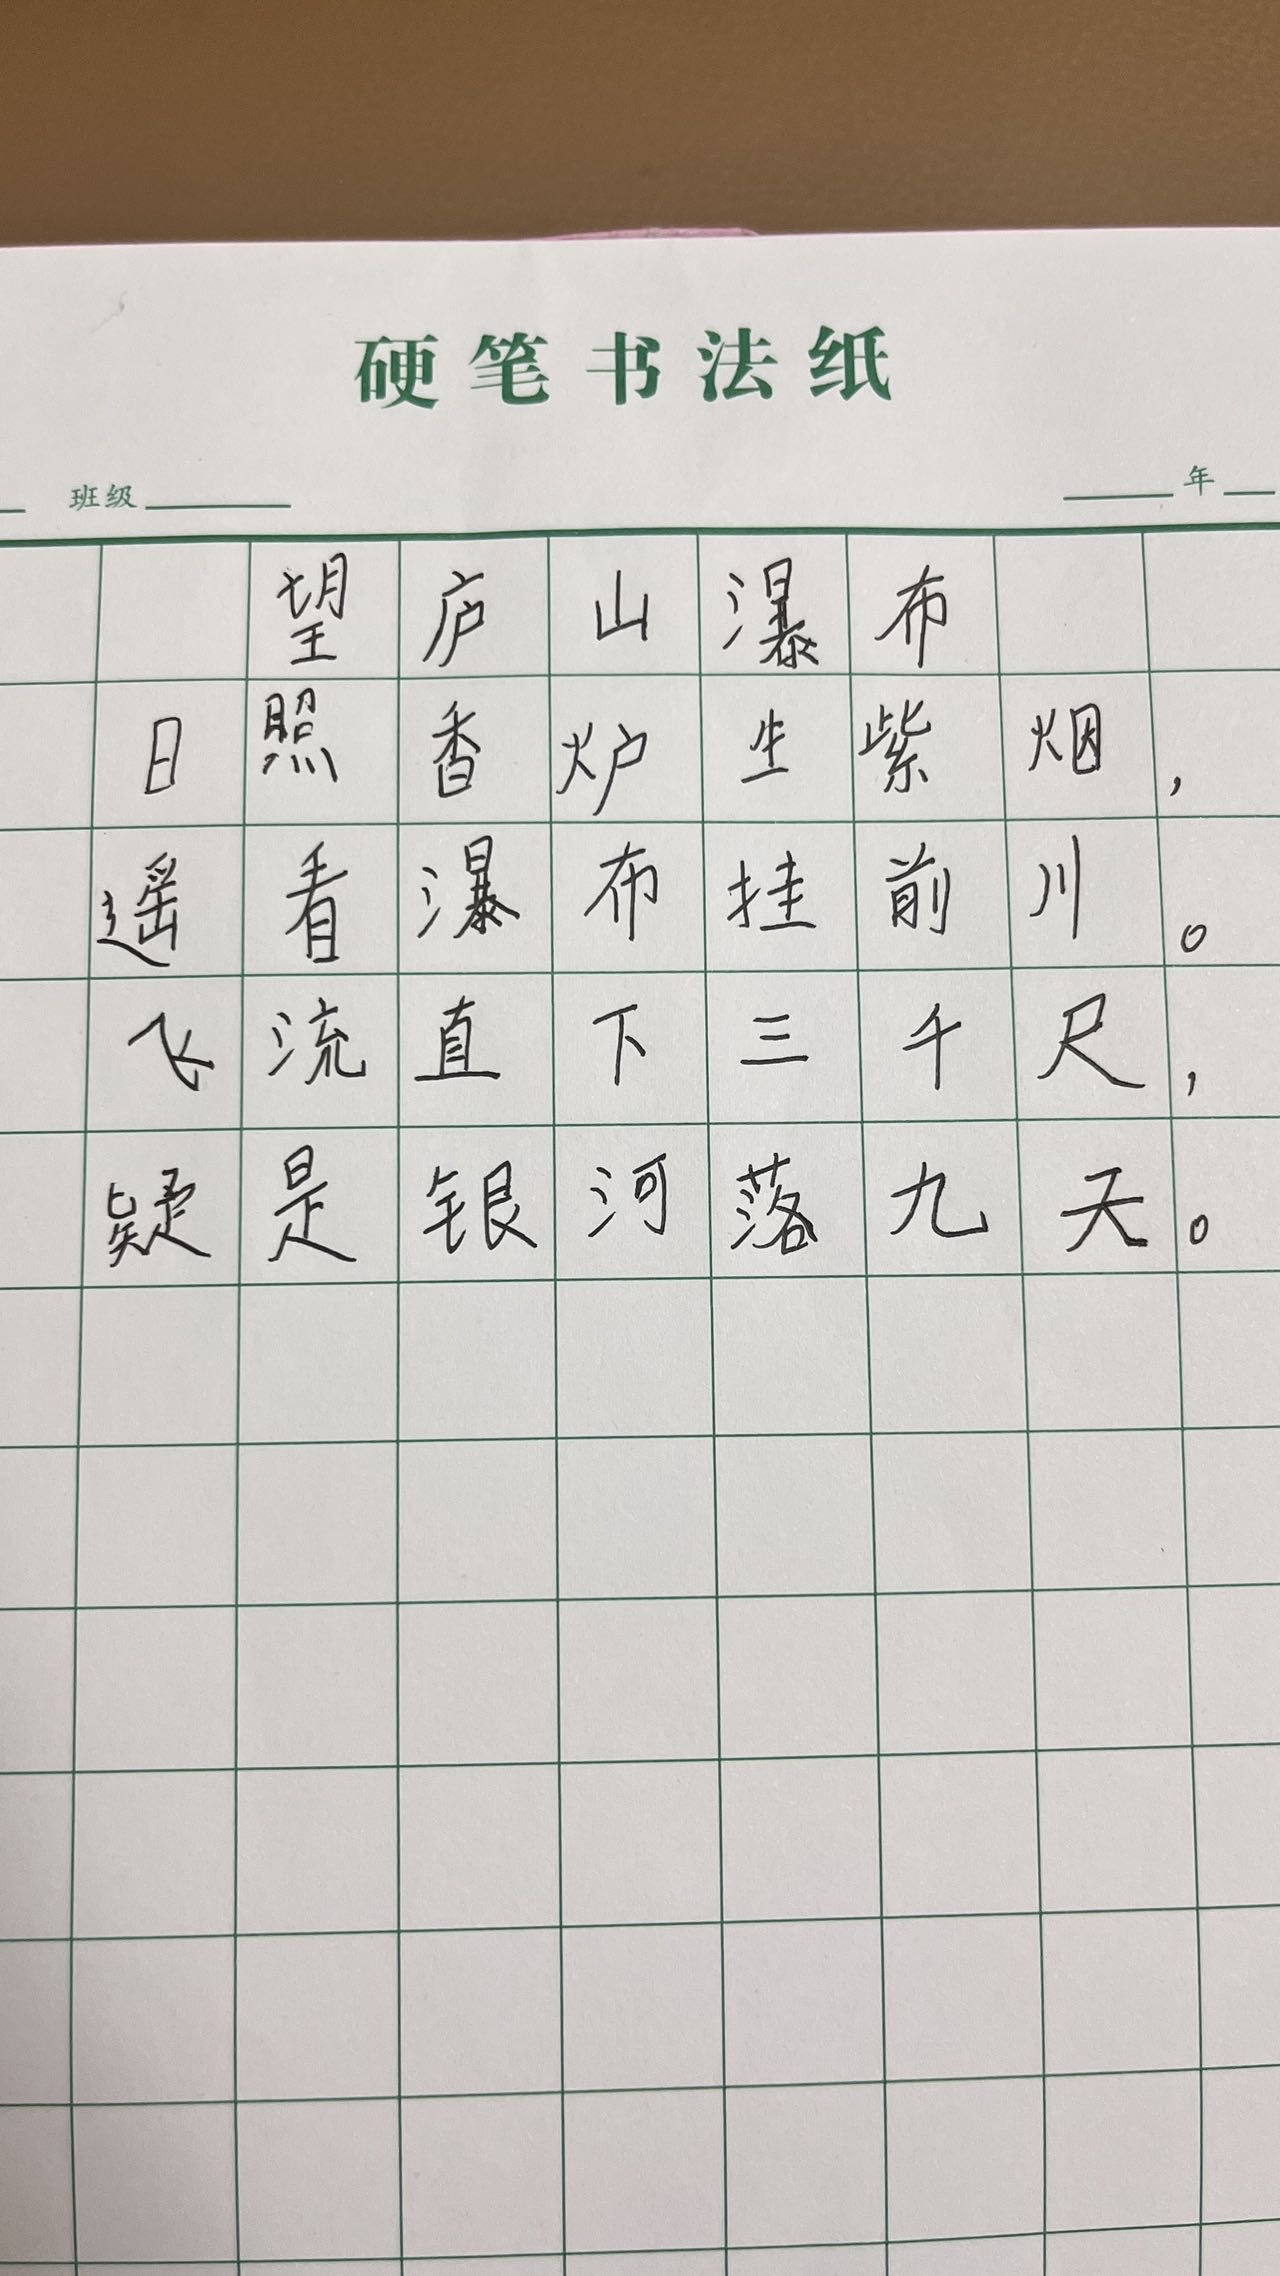 硬笔书法纸
班级 年
望庐山瀑布
日照香炉生紫烟,
遥看瀑布挂前川。
飞流直下三千尺,
疑是银河落九天。